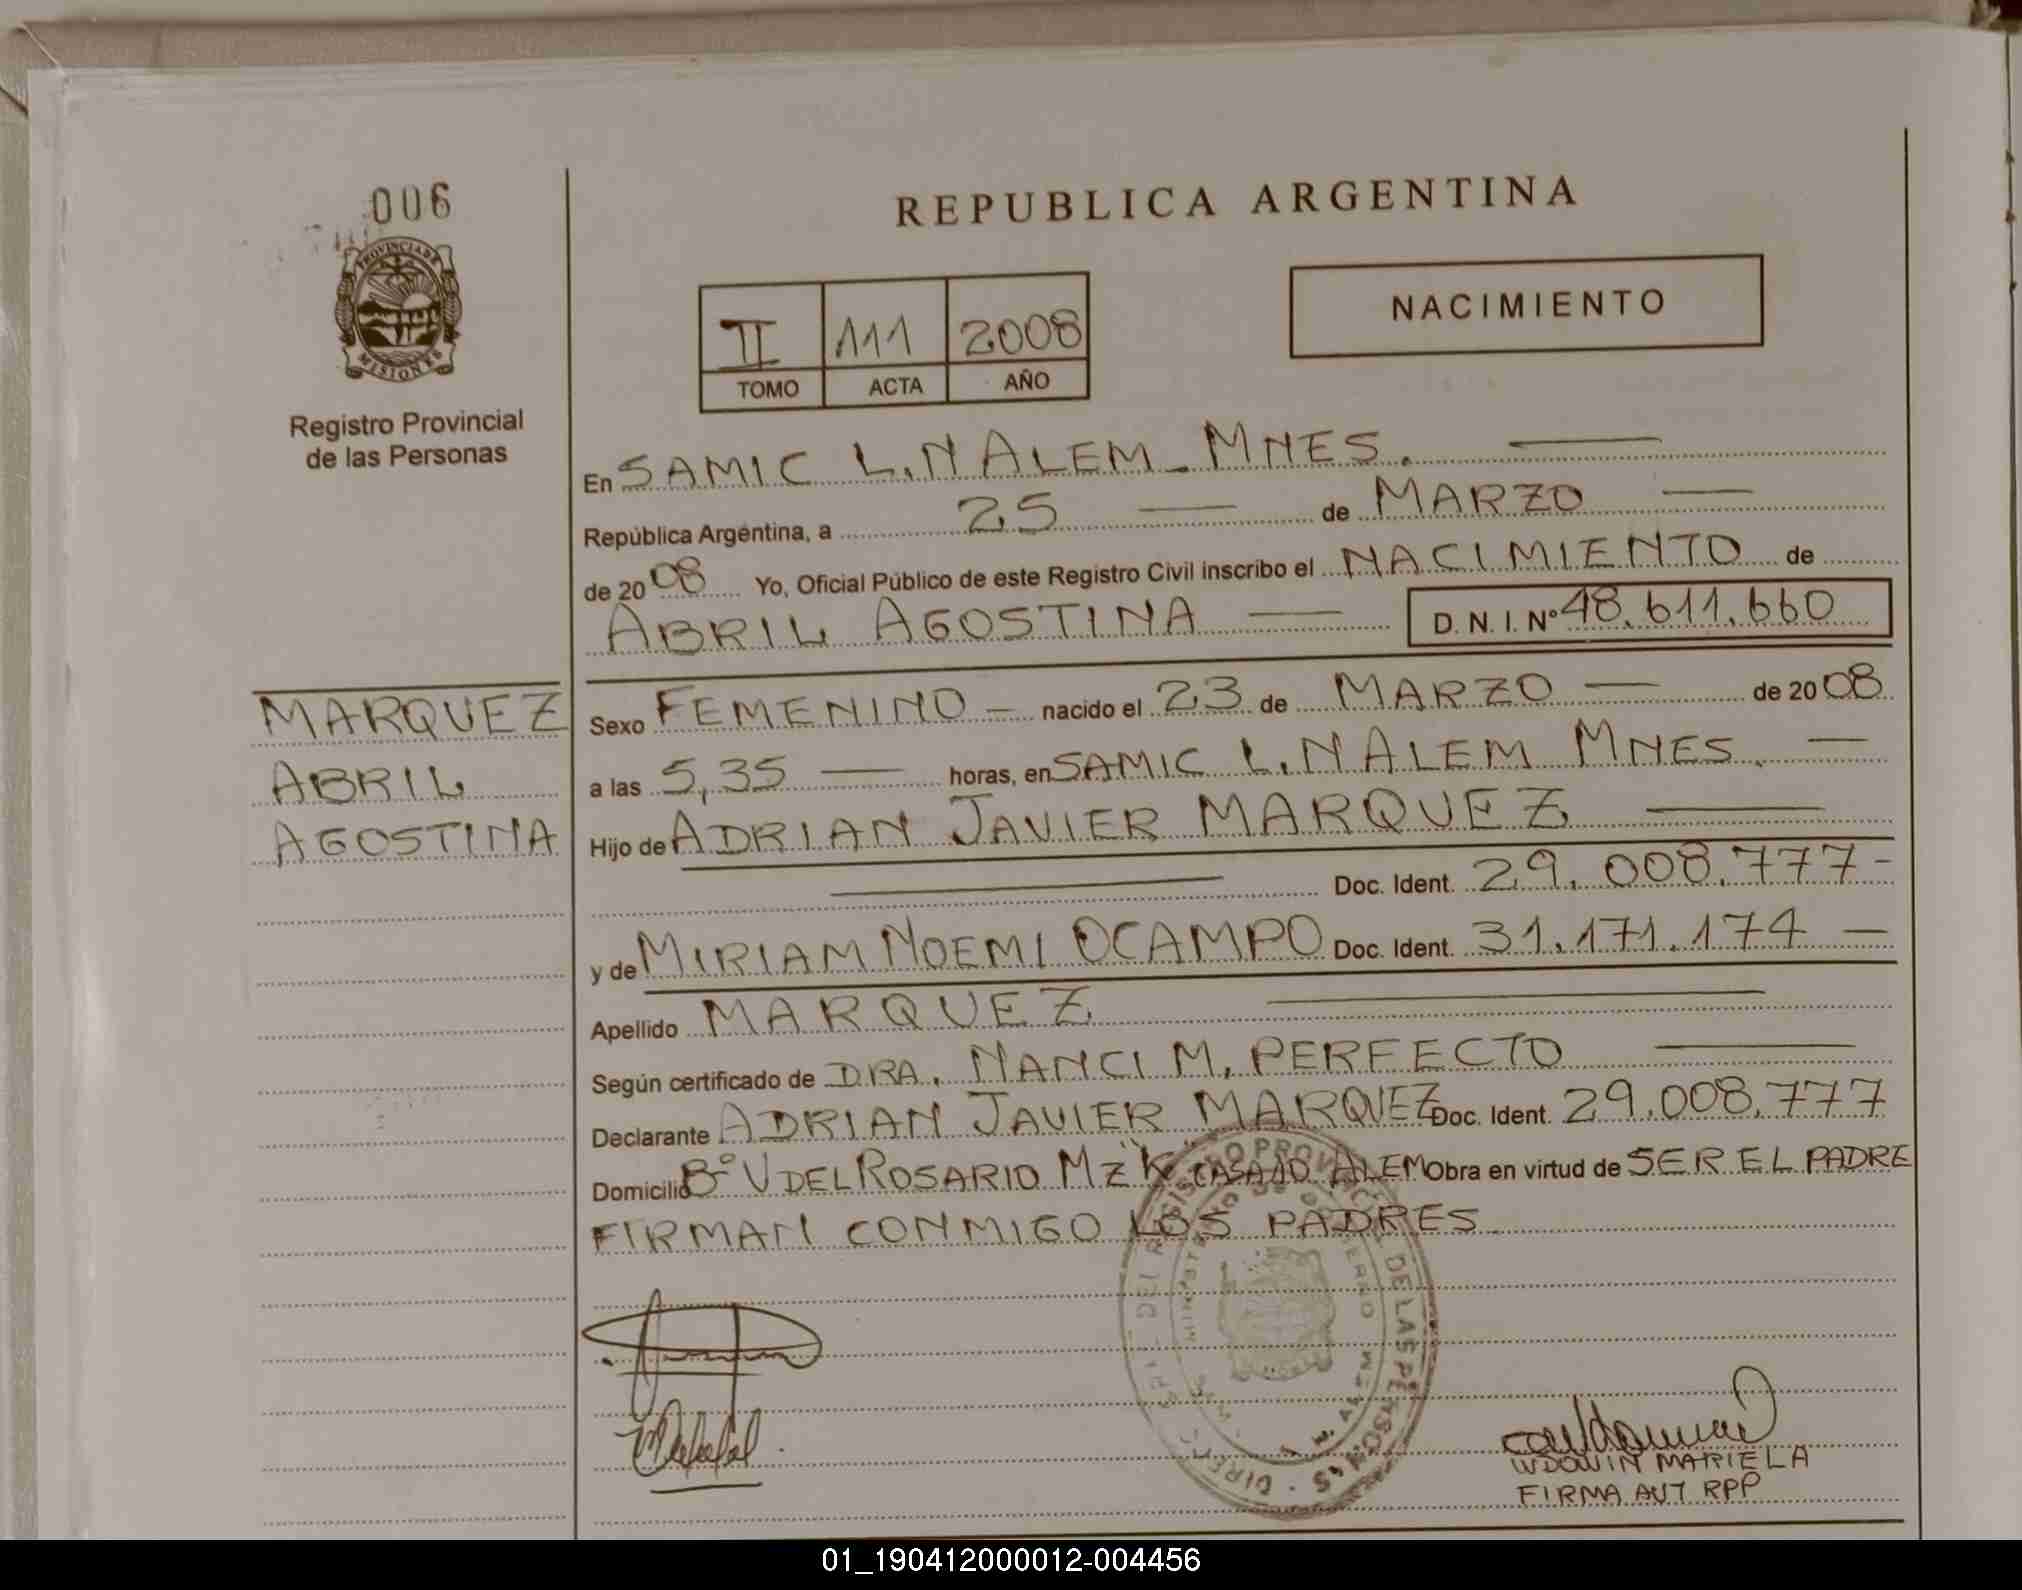 006
PROVINCIA DE
MISIONES
Registro Provincial
de las Personas
REPUBLICA ARGENTINA
II 111 2008
TOMO ACTA AÑO
NACIMIENTO
En SAMIC L.N ALEM - MNES.
República Argentina, a 25 de MARZO
de 2008 Yo, Oficial Público de este Registro Civil inscribo el NACIMIENTO de
ABRIL AGOSTINA D. N. I. Nº 48.611.660
MARQUEZ
ABRIL
AGOSTINA
Sexo FEMENINO - nacido el 23 de MARZO de 2008
a las 5,35 horas, en SAMIC L.N ALEM MNES.
Hijo de ADRIAN JAVIER MARQUEZ
Doc. Ident. 29.008.777-
y de MIRIAM NOEMI OCAMPO Doc. Ident. 31.171.174
Apellido MARQUEZ
Según certificado de DRA. NANCI M. PERFECTO
Declarante ADRIAN JAVIER MARQUEZ Doc. Ident. 29.008.777
Domicilio Bº V DEL ROSARIO MZ "K" CASA 10 ALEM Obra en virtud de SER EL PADRE
FIRMAN CONMIGO LOS PADRES
WDOWIN MARIELA
FIRMA AUT RPP
01_190412000012-004456